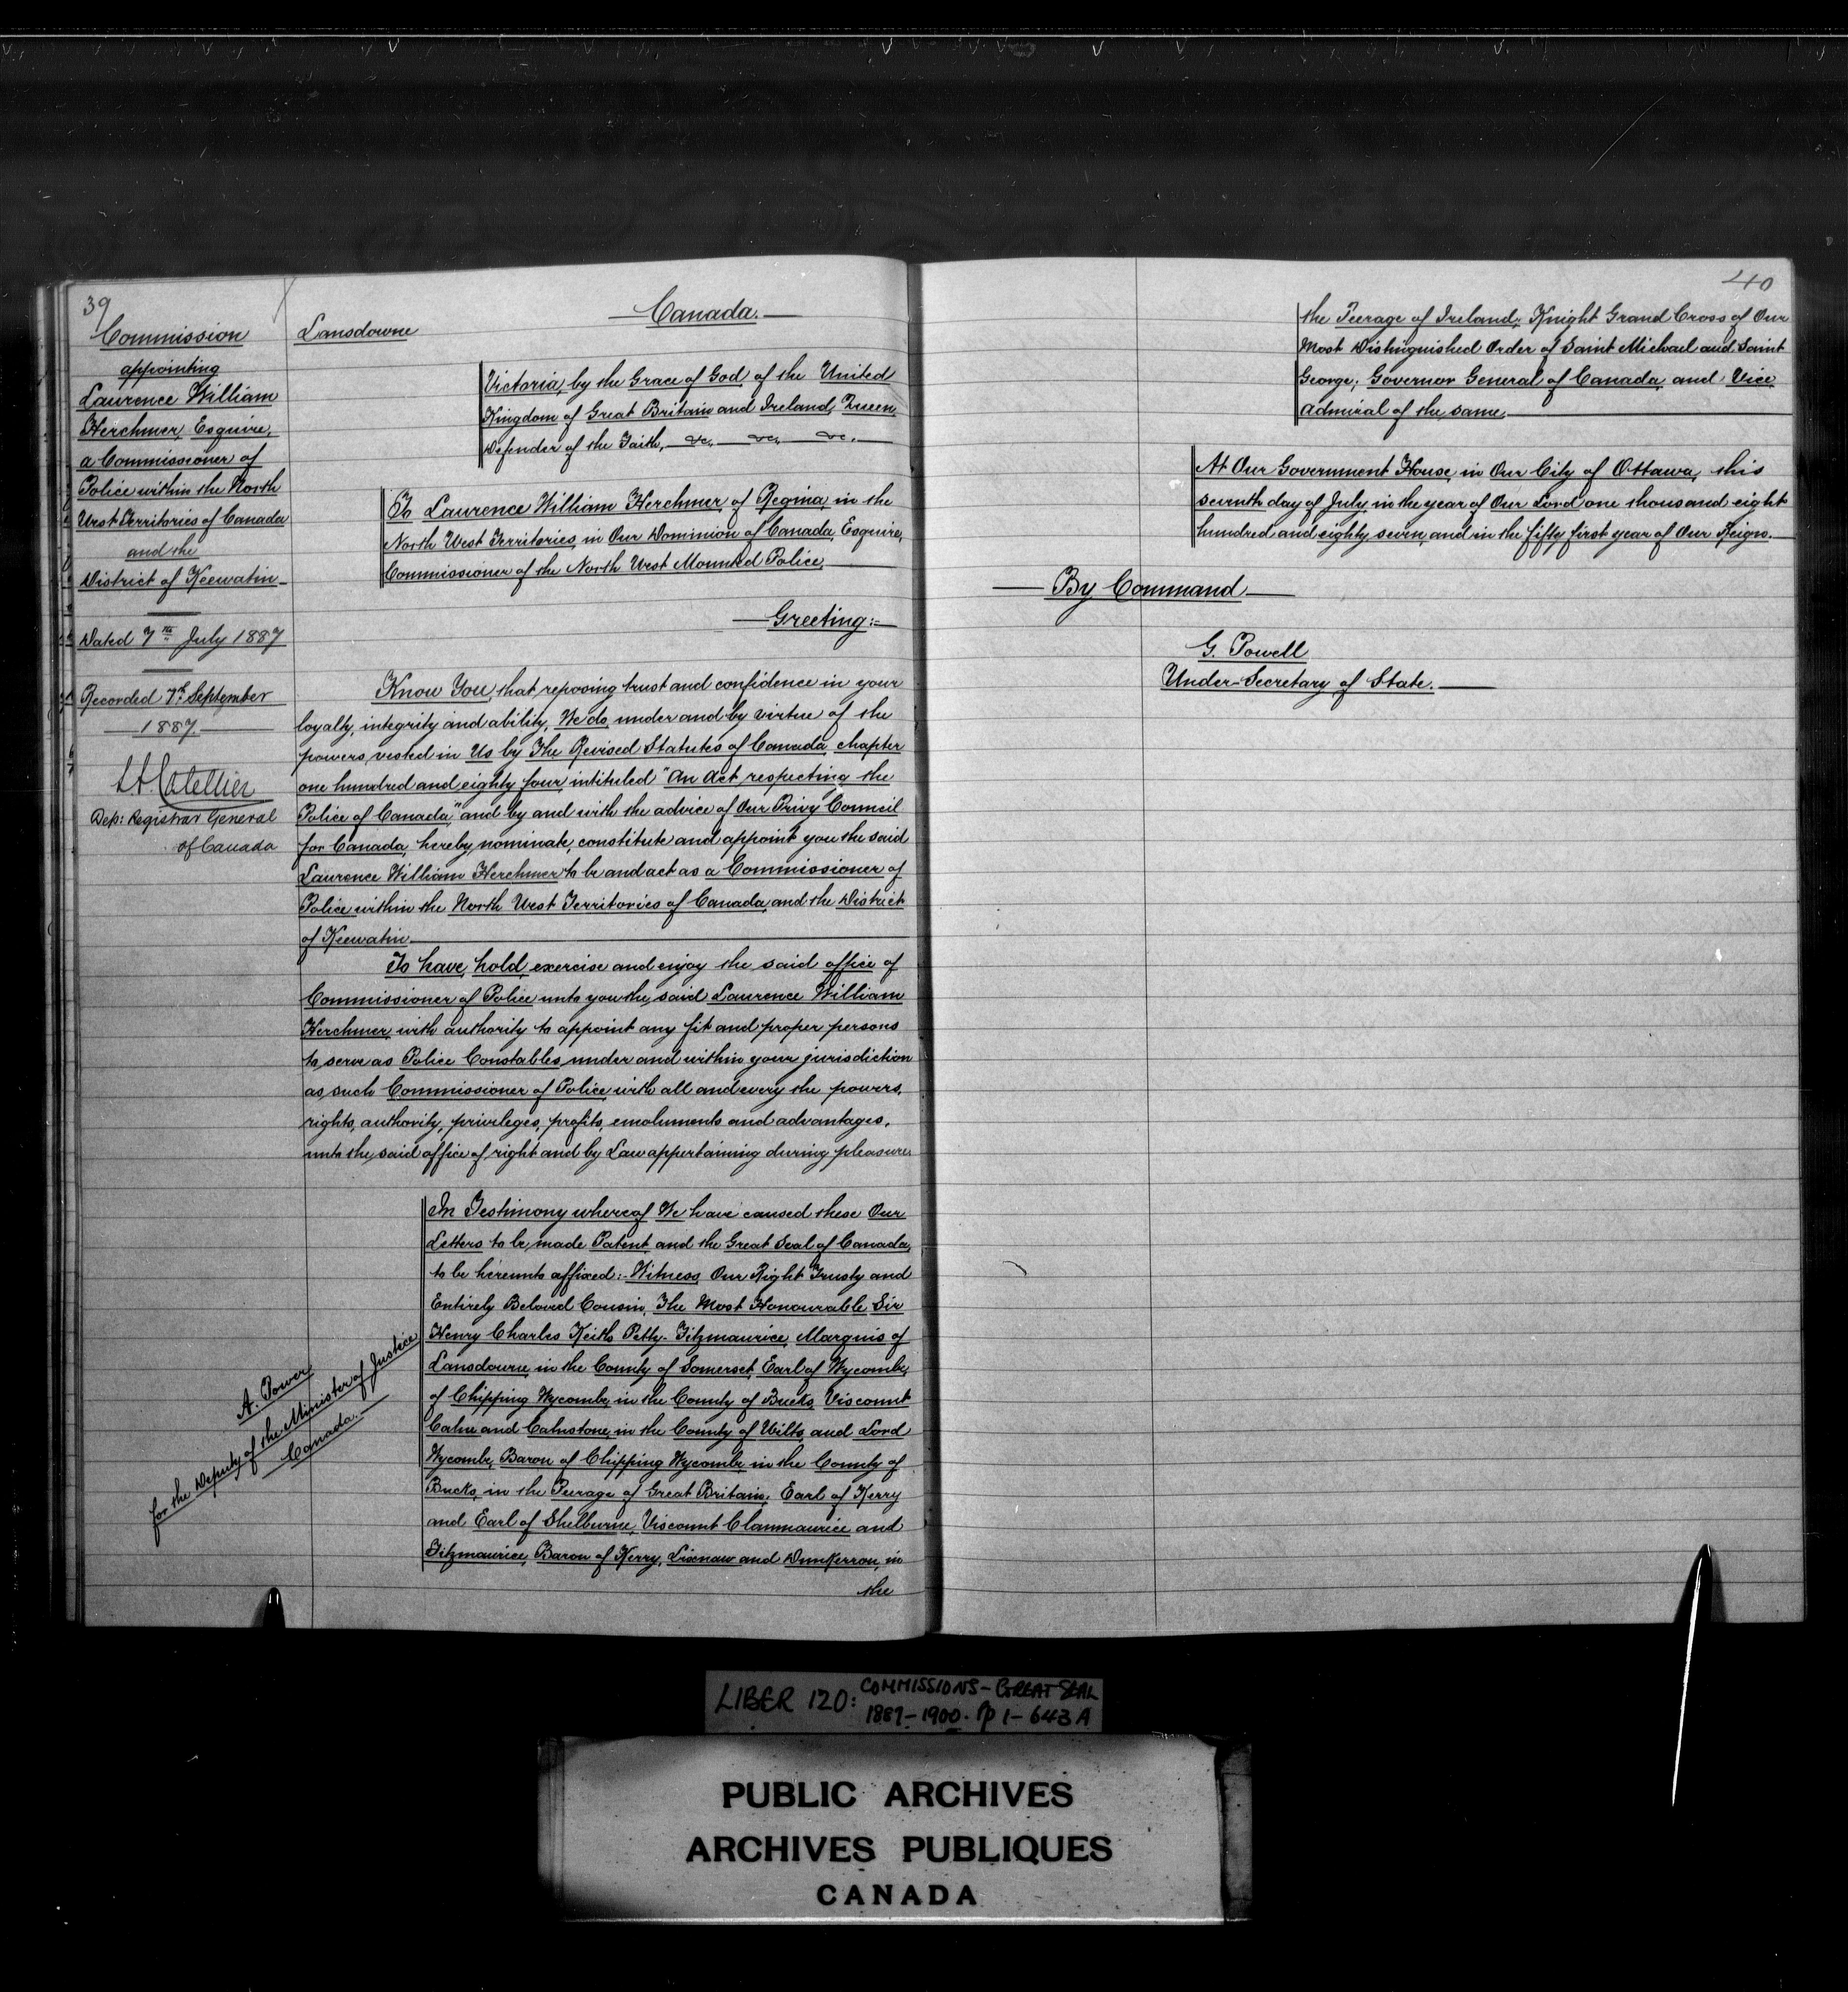 39
Commission
appointing
Laurence William
Herchmer, Esquire,
a Commissioner of
Police within the North
West Territories of Canada
and the
District of Keewatin
Dated 7th July 1887
Recorded 7th September
1887.
Dep: Registrar General
of Canada
Lansdowne
Canada.
Victoria, by the Grace of God of the United
Kingdom of Great Britain and Ireland, Queen,
Defender of the Faith, &c, &c, &c.
To Laurence William Herchmer, of Regina, in the
North West Territories, in Our Dominion of Canada, Esquire,
Commissioner of the North West Mounted Police.
Greeting:-
Know You, that, reposing trust and confidence in your
loyalty, integrity and ability, We do, under and by virtue of the
powers, vested in Us by The Revised Statutes of Canada, chapter
one hundred and eighty four, intituled "An Act respecting the
Police of Canada," and by and with the advice of Our Privy Council
for Canada, hereby, nominate, constitute and appoint you the said
Laurence William Herchmer to be and act as a Commissioner of
Police within the North West Territories of Canada, and the District
of Keewatin.
To have, hold, exercise and enjoy the said office of
Commissioner of Police unto you the, said Laurence William
Herchmer, with authority to appoint any fit and proper persons
to serve as Police Constables, under and within your jurisdiction
as such Commissioner of Police with all and every the powers,
rights, authority, privileges, profits, emoluments and advantages,
unto the, said office of right and by Law appertaining during pleasure.
In Testimony whereof We have caused these Our
Letters to be, made Patent, and the Great Seal of Canada,
to be hereunto affixed:- Witness, Our Right Trusty and
Entirely Beloved Cousin, The Most Honourable Sir
Henry Charles Keith Petty-Fitzmaurice, Marquis of
Lansdowne, in the County of Somerset, Earl of Wycombe,
of Chipping Wycombe, in the County of Bucks, Viscount
Calne and Calnstone, in the County of Wilts, and Lord
Wycombe, Baron of Chipping Wycombe, in the County of
Bucks, in the Peerage of Great Britain; Earl of Kerry
and Earl of Shelburne, Viscount Clanmaurice and
Fitzmaurice, Baron of Kerry, Lixnaw and Dunkerron, in
the
A. Power
for the Deputy of the Minister of Justice
Canada.
40
the Peerage of Ireland; Knight Grand Cross of Our
Most Distinguished Order of Saint Michael and Saint
George; Governor General of Canada, and Vice
Admiral of the same.
At Our Government House, in Our City of Ottawa, this
seventh day of July, in the year of Our Lord one thousand eight
hundred and eighty seven, and in the fifty first year of Our Reign.
By Command
G. Powell
Under-Secretary of State.
LIBER 120: COMMISSIONS - GREAT SEAL
1887-1900. pp 1-643A
PUBLIC ARCHIVES
ARCHIVES PUBLIQUES
CANADA